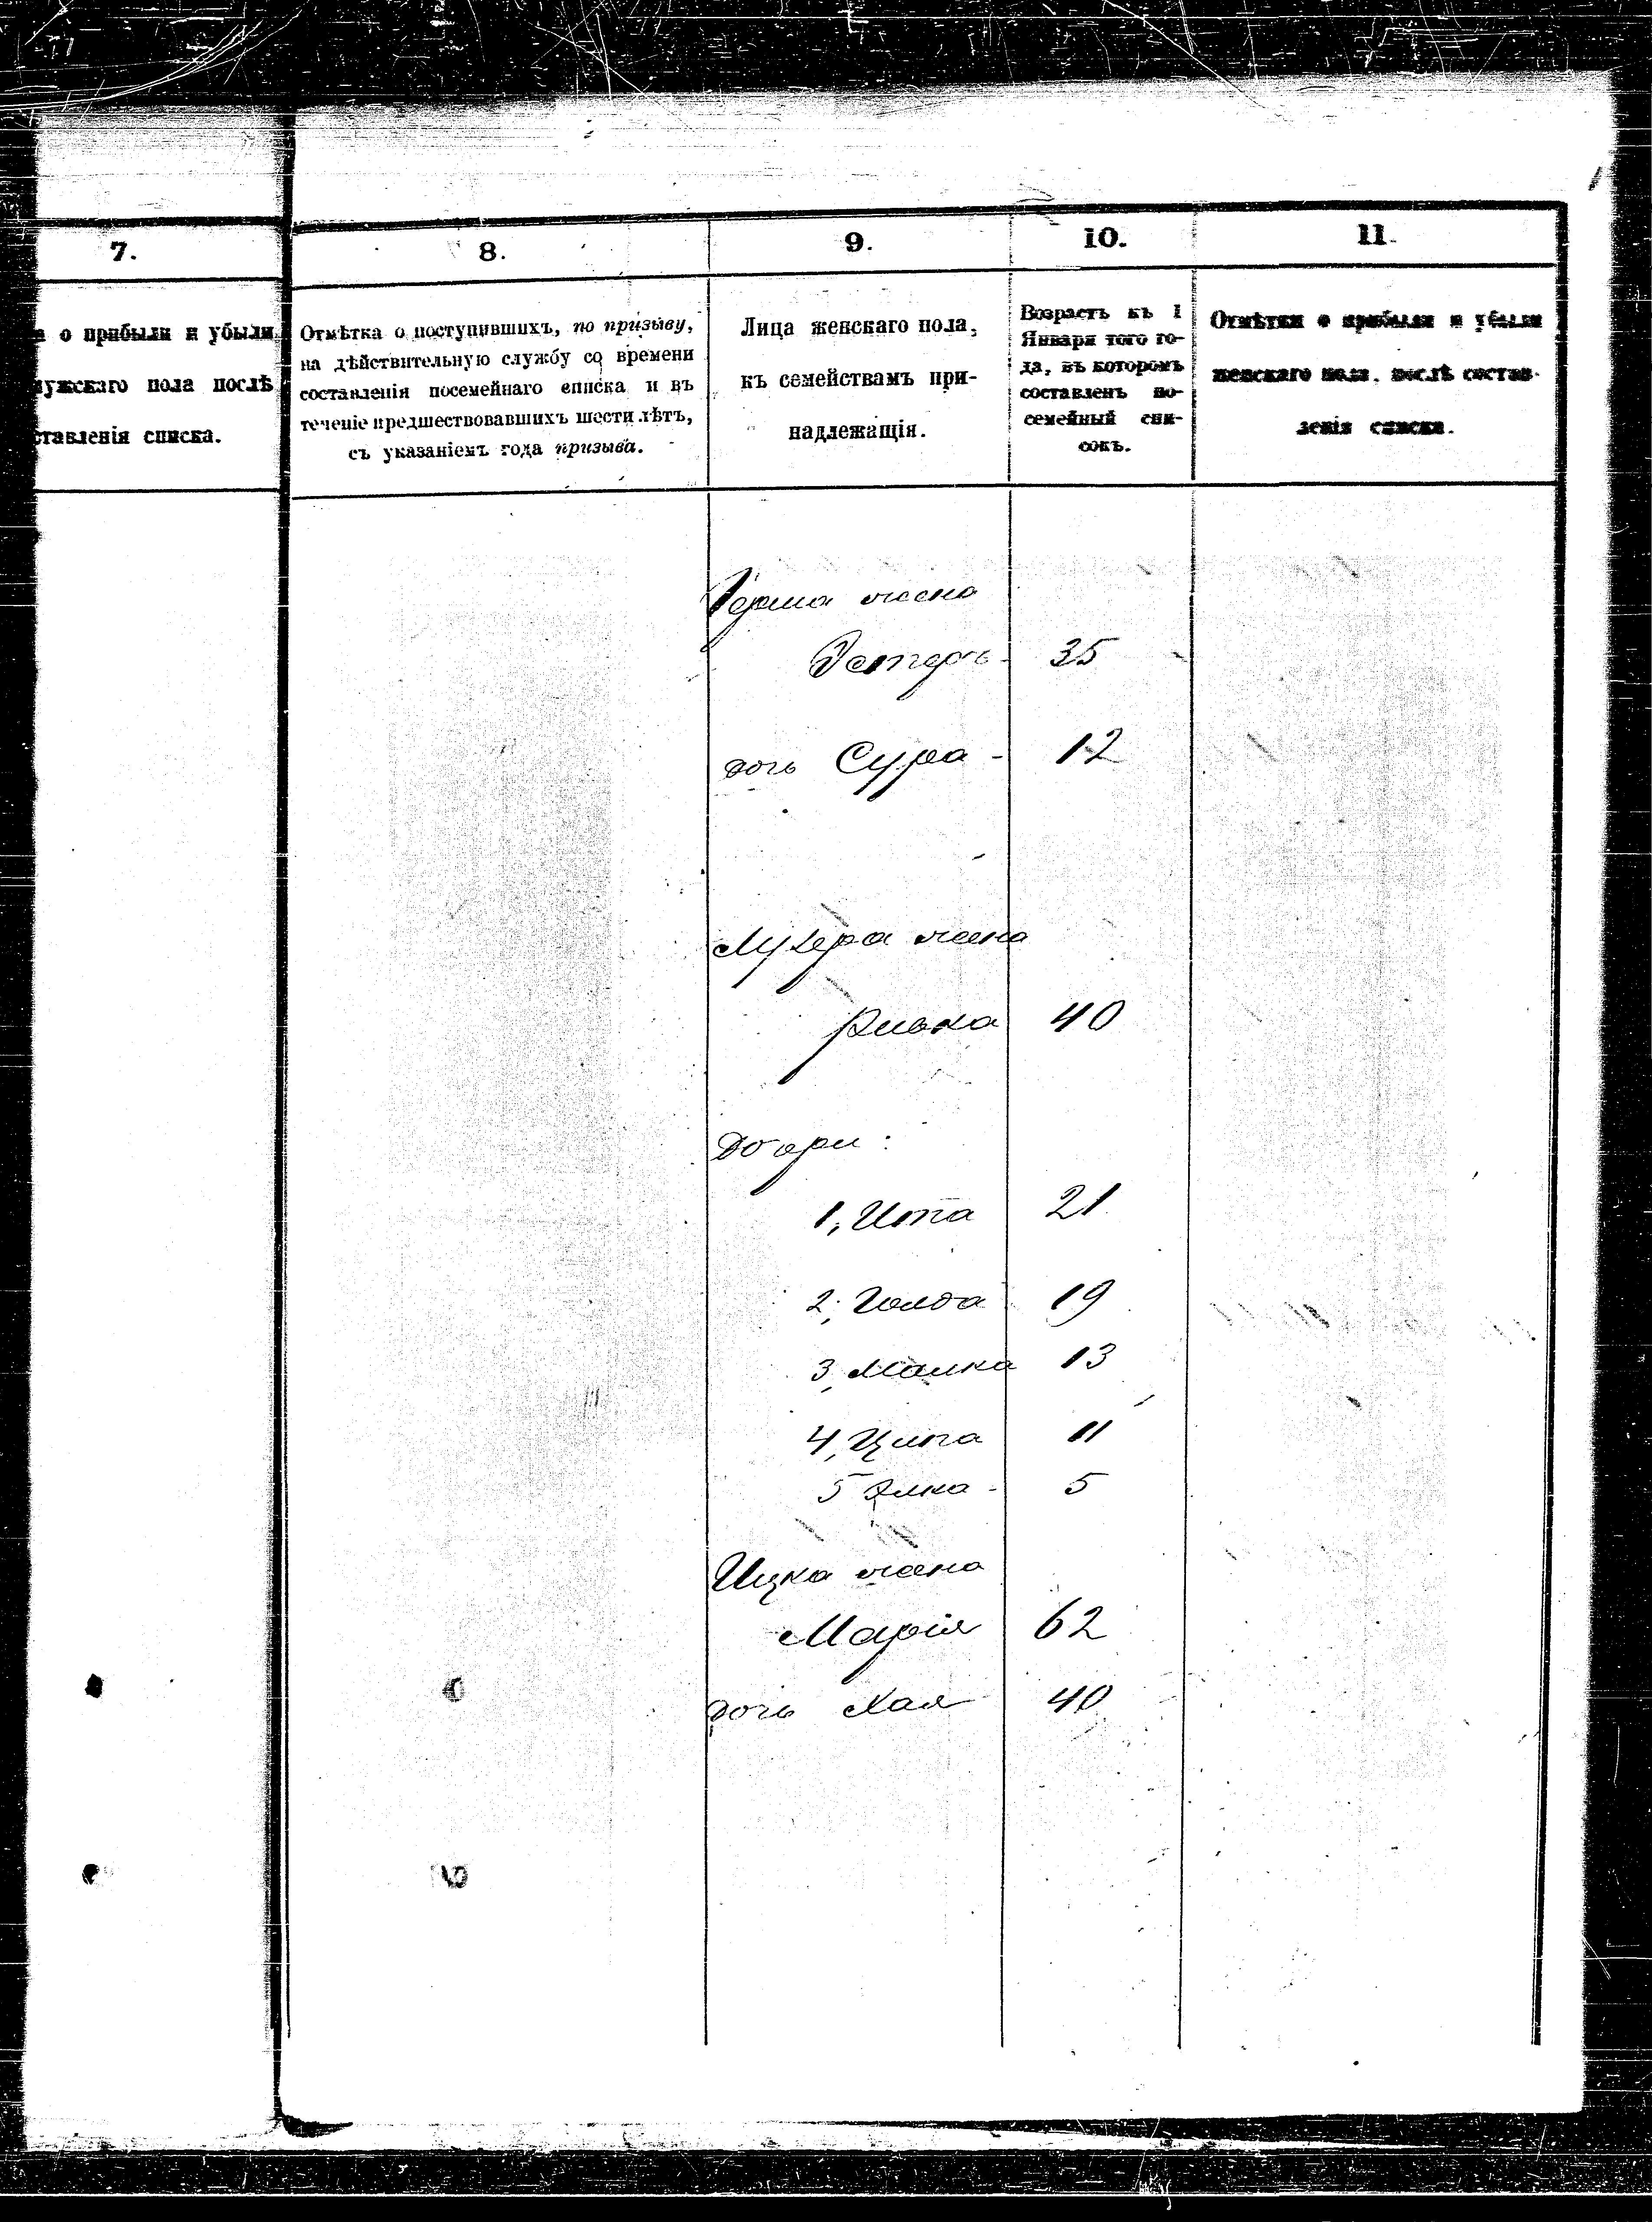 7.
8.
9.
10.
11.
о прибыли и убыли
мужскаго пола послѣ
ставленія списка.
Отмѣтка о поступившихъ, по призыву,
на дѣйствительную службу со времени
составленія посемейнаго списка и въ
теченіе предшествовавшихъ шести лѣтъ,
съ указаніемъ года призыва.
Лица женскаго пола,
къ семействамъ при-
надлежащія.
Возрастъ къ 1
Января того го-
да, въ которомъ
составленъ по-
семейный спи-
сокъ.
Отмѣтки о прибыли и убыли
женскаго пола, послѣ состав-
ленія списка.
жена
Эстеръ - 35
дочь Сура - 12
жена
Ривка 40
Дочери:
1, Ита 21
2, Голда 19
3, Малка 13
4, Ципа 11
5 Элка - 5
Ицка жена
Марія 62
дочь Хая 40